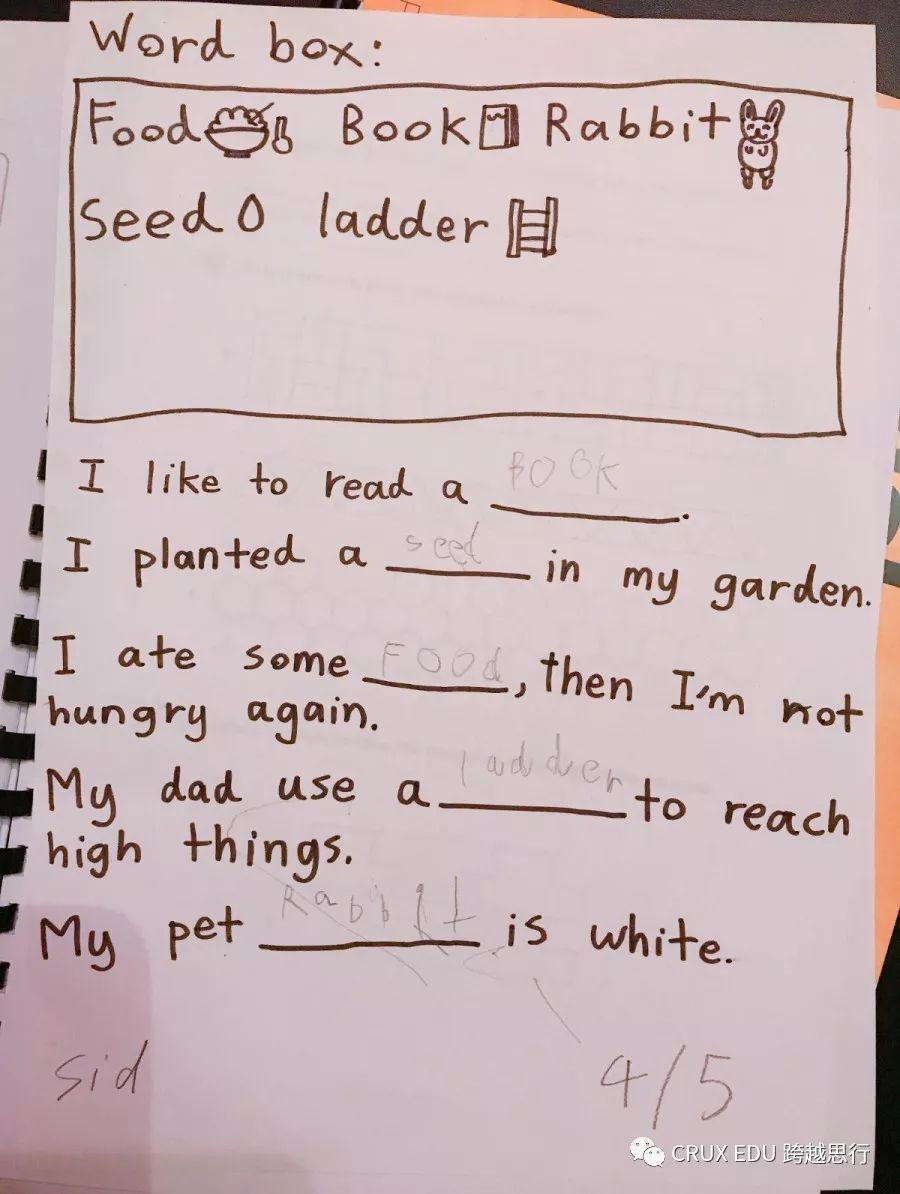 Word box:
Food Book Rabbit
Seed ladder
I like to read a BOOK.
I planted a seed in my garden.
I ate some Food, then I'm not
hungry again.
My dad use a ladder to reach
high things.
My pet Rabbit is white.
Sid 4/5
CRUX EDU 跨越思行